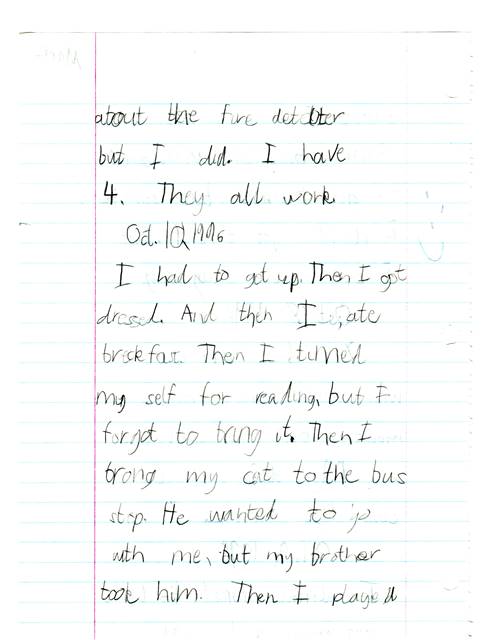 about the fire detobter
but I did. I have
4. They all work.
Oct. 10, 1996
I had to get up. Then I got
dressed. And then I ate
breckfast. Then I tumed
my self for reading, but I
forgot to tring it. Then I
brong my cat to the bus
stop. He wanted to go
with me, but my brother
took him. Then I played